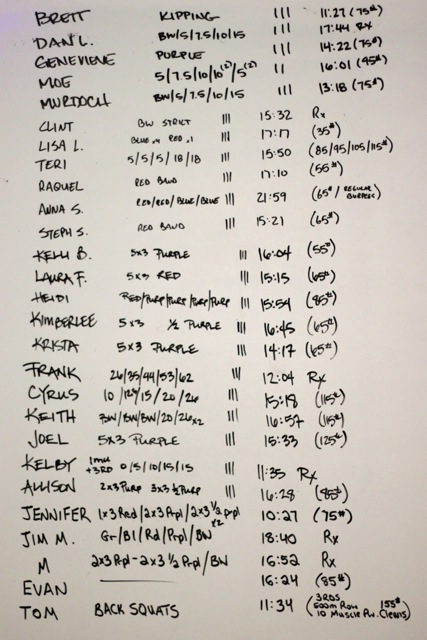 BRETT KIPPING III 11:27 (75#)
DAN L. BW/5/7.5/10/15 III 17:44 Rx
GENEVIENE PURPLE II 14:22 (75#)
MOE 5/7.5/10/10(2)/5(2) II 16:01 (95#)
MURDOCH BW/5/7.5/10/15 III 13:18 (75#)
CLINT BW STRICT III 15:32 Rx
LISA L. BLUE x4 RED x1 III 17:17 (35#)
TERI 5/5/5/18/18 III 15:50 (85/95/105/115#)
RAQUEL RED BAND III 17:10 (55#)
ANNA S. RED/RED/BLUE/BLUE III 21:59 (65#/REGULAR BURPEES)
STEPH S. RED BAND III 15:21 (65#)
KELLI B. 5x3 PURPLE III 16:04 (55#)
LAURA F. 5x3 RED III 15:15 (65#)
HEIDI RED/PURP/PURP/PURP/PURP III 15:54 (85#)
KIMBERLEE 5x3 ½ PURPLE III 16:45 (65#)
KRISTA 5x3 PURPLE III 14:17 (65#)
FRANK 26/35/44/53/62 III 12:04 Rx
CYRUS 10/15/20/26 III 15:18 (115#)
KEITH BW/BW/BW/20/26x2 III 16:57 (115#)
JOEL 5x3 PURPLE III 15:33 (125#)
KELBY 1mu +3RD 0/5/10/15/15 III 11:35 Rx
ALLISON 2x3 PURP 3x3 ½ PURP III 16:28 (85#)
JENNIFER 1x3 Red/2x3 Prpl/2x3 ½ Prpl x2 10:27 (75#)
JIM M. Gr/Bl/Rd/Prpl/BW 18:40 Rx
M 2x3 Prpl - 2x3 ½ Prpl/BW 16:52 Rx
EVAN 16:24 (85#)
TOM BACK SQUATS 11:34 (3RDS 500m Row 155# 10 Muscle Pw. Cleans)